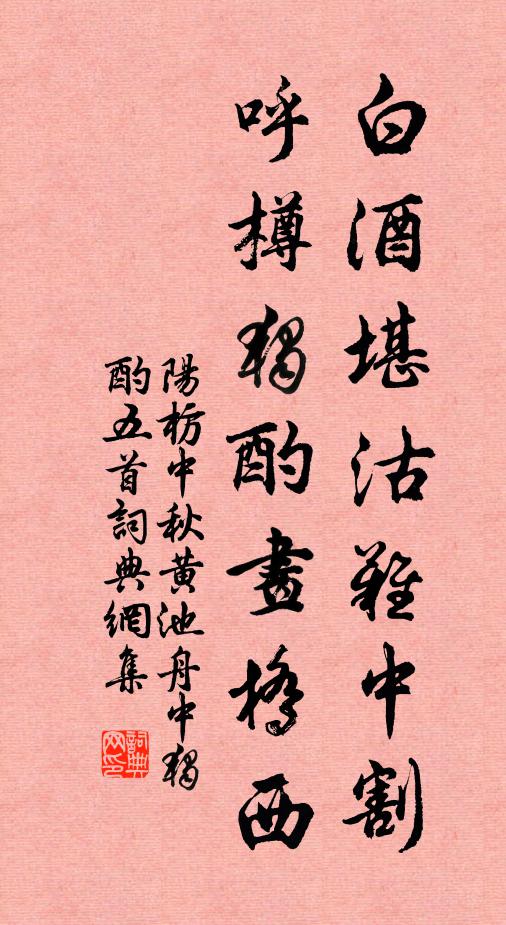 白酒堪沽雞中割
呼樽獨酌畫橋西
陽枋中秋黄池舟中獨
酌五首詞典網集
詞典網印